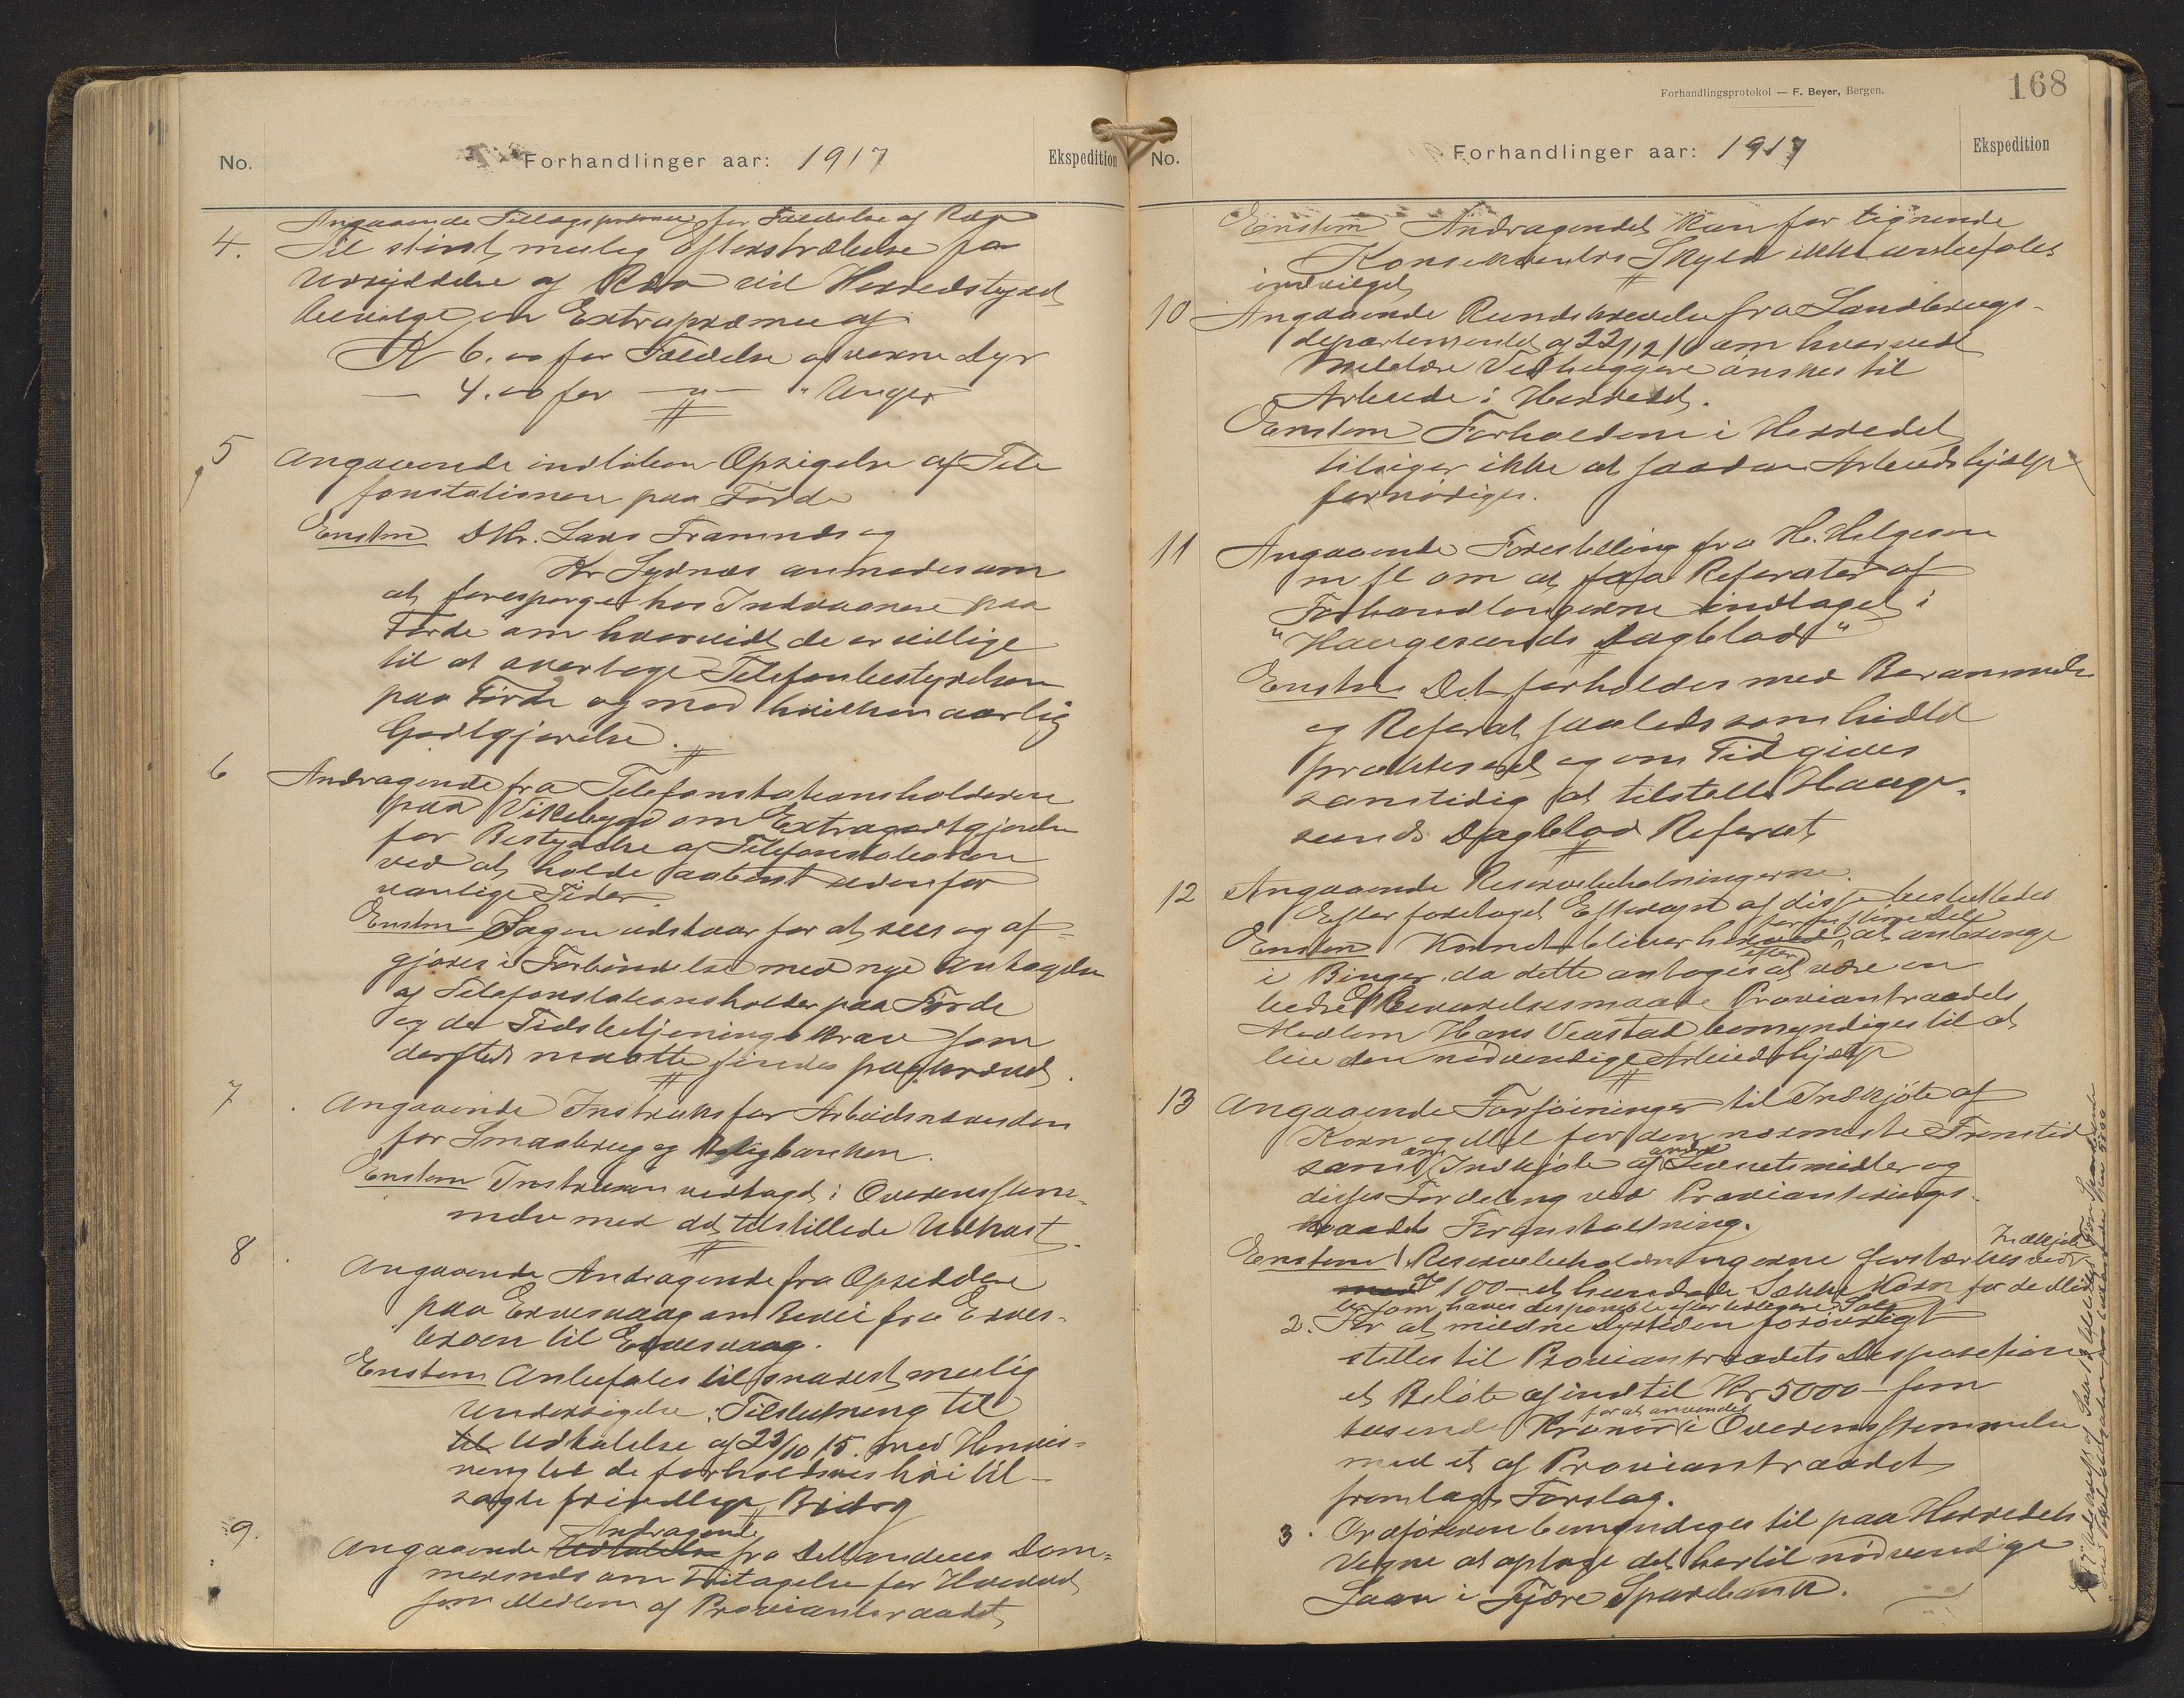 No.
Forhandlinger aar: 1917
Ekspedition
4. Angaaende Tillægspræmie for Fældelse af Ræv
Til størst mulig Efterstræbelse for
Udryddelse af Ræv vil Herredstyret
bevilge en Extrapræmie af
Kr 6.00 for Fældelse af voxne Dyr
— 4.00 for —„— " Unger
5 Angaaende indløben Opsigelse af Tele
fonstationen paa Førde
Enstm DHr. Lars Framnæs og
Kr Lydnæs anmodes om
at forespørge hos Indvaanere paa
Førde om hvorvidt de er villige
til at overtage Telefonbestyrelsen
paa Førde og mod hvilken aarlig
Godtgjørelse.
6 Andragende fra Telefonstationsholderen
paa Vikebygd om Extragodtgjørelse
for Bestyrelse af Telefonstationen
ved at holde aabent udenfor
vanlige Tider.
Enstm Sagen udstaar for at sees og af-
gjøres i Forbindelse med nye Antagelse
af Telefonstationsholder paa Førde
og de Tidsbetjeningskrav som
dersteds maatte findes paakrævet.
7 Angaaende Instruks for Arbeidsnævnden
for Smaabrug og Boligbanken.
Enstem Instruxen vedtaget i Overensstem-
melse med det tilstillede Udkast.
8 Angaaende Andragende fra Opsidderne
paa Ervesvaag om Bevei fra Erves-
broen til Ervesvaag.
Enstem Anbefales til snarest mulig
Undersøgelse. Tilslutning til
til Udtalelse af 23/10 15. med Henvis-
ning til de forholdsvis høi til-
sagte frivillige Bidrag
9. Angaaende Udtalelse Andragende fra Lensmand Dom-
mersnes om Fritagelse for Hvervet
som Medlem af Proviantraadet
Forhandlingsprotokol — F. Beyer, Bergen.
168
No.
Forhandlinger aar: 1917
Ekspedition
Enstem Andragendet kan for lignende
Konsekventses Skyld ikke anbefales
indvilget
10 Angaaende Rundskrivelse fra Landbrugs-
departementet af 22/12 16 om hvorvidt
militære Vedhuggere ønskes til
Arbeide i Herredet.
Enstem Forholdene i Herredet
tilsiger ikke at saadan Arbeidshjælp
fornødiges.
11 Angaaende Forestilling fra H. Helgesen
m fl om at faa Referater af
Forhandlingerne indtaget i
"Haugesunds Dagblad"
Enstem Det forholdes med Berammelse
og Referat saaleds som hidtil
praktiseret og om Tid gives
samtidig at tilstille Hauge-
sunds Dagblad Referat
12 Angaaende Reservebeholdningerne.
Efter foretaget Eftersyn af disse besluttedes
Enstem Kornet bliver herved for en større Del at anbringe
i Binger da dette antages at være en
bedre Bevarelsesmaade Proviantraadets
Medlem Hans Veastad bemyndiges til at
leie den nødvendige Arbeidshjælp
13 Angaaende Forføininger til Indkjøb af
Korn og Mel for den nærmeste Fremtid
samt om Indkjøb af andre Livnetsmidler og
disses Fordeling ved Provianterings-
raadets Foranstaltning.
Enstem 1 Reservebeholdningerne forstærkes ved Indkjøb
med 100 – et hundrede Sække Korn for de Midler
som haves disponible efter tidligere Salg
2. For at mildne Dyrtiden forøvrigt
stilles til Proviantraadets Disposition
et Beløb af indtil Kr 5000 – fem
tusend Kroner for at anvendes i Overensstemmelse
med et af Proviantraadet
fremlagt Forslag.
3. Ordføreren bemyndiges til paa Herredets
Vegne at optage det hertil nødvendige
Laan i Fjære Sparebank.